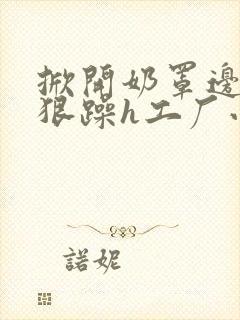 掀開奶罩邊
狠躁h工厂
諾妮